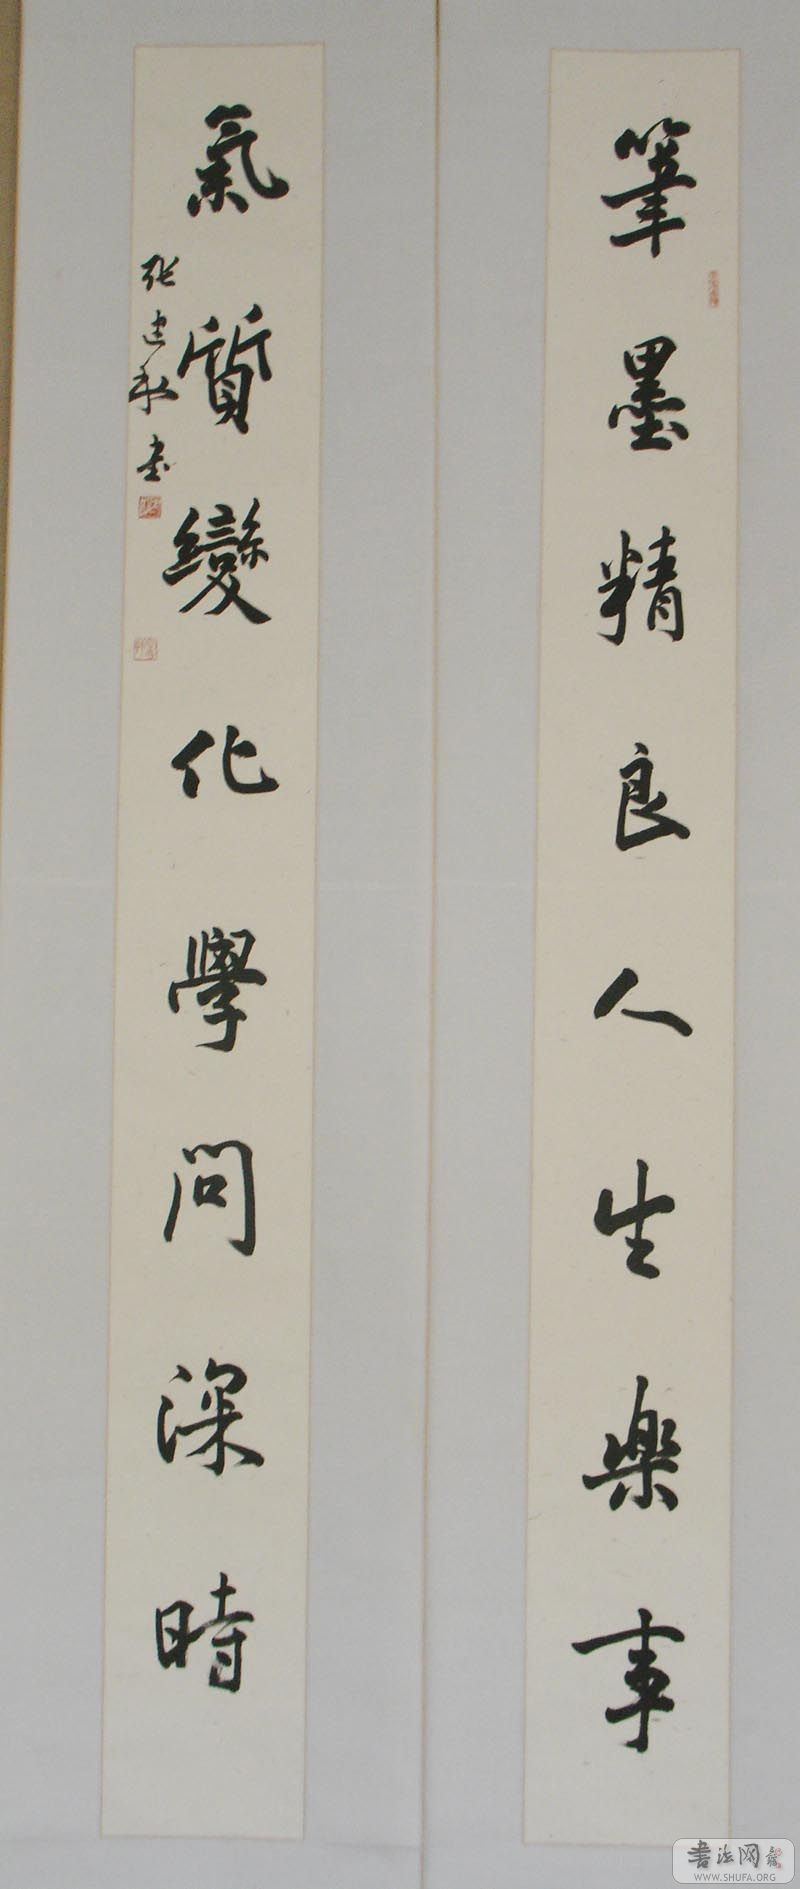 筆墨精良人生樂事
氣質變化學問深時
张建书
书法网
WWW.SHUFA.ORG